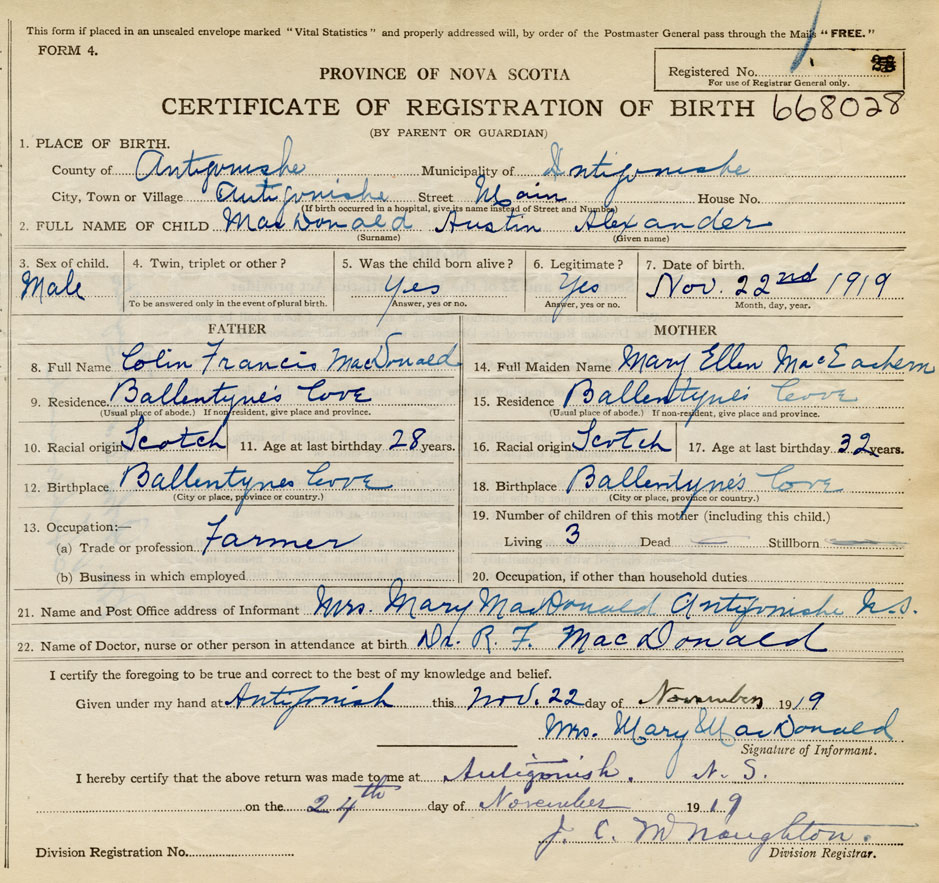 This form if placed in an unsealed envelope marked "Vital Statistics" and properly addressed will, by order of the Postmaster General pass through the Mails "FREE."
FORM 4.
PROVINCE OF NOVA SCOTIA
Registered No.
For use of Registrar General only.
CERTIFICATE OF REGISTRATION OF BIRTH 668028
(BY PARENT OR GUARDIAN)
1. PLACE OF BIRTH.
County of Antigonishe Municipality of Antigonishe
City, Town or Village Antigonishe Street Main House No.
(If birth occurred in a hospital, give its name instead of Street and Number)
2. FULL NAME OF CHILD MacDonald Austin Alexander
(Surname) (Given name)
3. Sex of child. 4. Twin, triplet or other? 5. Was the child born alive? 6. Legitimate? 7. Date of birth.
Male Yes Yes Nov. 22nd 1919
To be answered only in the event of plural birth. Answer, yes or no. Answer, yes or no. Month, day, year.
FATHER MOTHER
8. Full Name Colin Francis MacDonald 14. Full Maiden Name Mary Ellen MacEachern
9. Residence. Ballentyne's Cove 15. Residence Ballentyne's Cove
(Usual place of abode.) If non-resident, give place and province. (Usual place of abode.) If non-resident, give place and province.
10. Racial origin Scotch 11. Age at last birthday 28 years. 16. Racial origin Scotch 17. Age at last birthday 32 years.
12. Birthplace Ballentynes Cove 18. Birthplace Ballentyne's Cove
(City or place, province or country.) (City or place, province or country.)
13. Occupation:— 19. Number of children of this mother (including this child.)
(a) Trade or profession Farmer Living 3 Dead — Stillborn —
(b) Business in which employed 20. Occupation, if other than household duties
21. Name and Post Office address of Informant Mrs. Mary MacDonald Antigonishe N.S.
22. Name of Doctor, nurse or other person in attendance at birth Dr. R. F. MacDonald
I certify the foregoing to be true and correct to the best of my knowledge and belief.
Given under my hand at Antigonish this Nov. 22 day of November 1919
Mrs. Mary MacDonald
Signature of Informant.
I hereby certify that the above return was made to me at Antigonish. N. S.
on the 24th day of November 1919
J. C. McNaughton.
Division Registration No. Division Registrar.